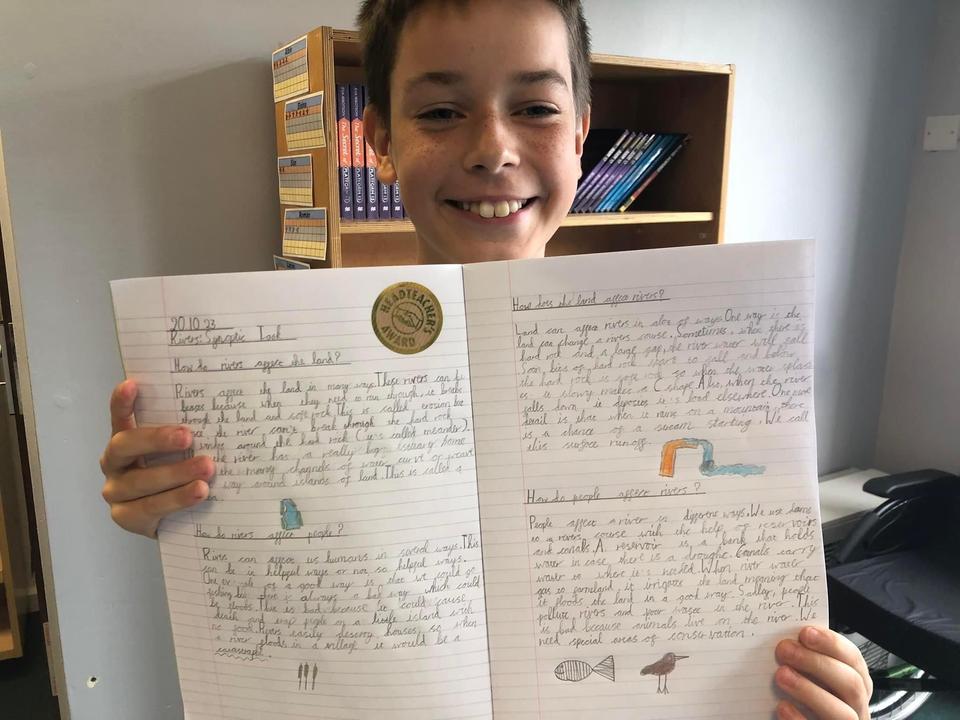 20.10.23
Rivers: Synoptic Task
HEADTEACHER'S
AWARD
How do rivers affect the land?
Rivers affect the land in many ways. These rivers can be
because when they need to run through, it breaks
through the land and soft rock. This is called erosion
the river can't break through the hard rock
around the hard rock (it's called meander).
the river has a really big
the many channels of water curve or
way around islands of land. This is called a
How do rivers affect people?
Rivers can affect us humans in several ways. This
can be in helpful ways or not so helpful ways.
One of a good way is that we could go
fishing but there is always a bad way which could
be floods. This is bad because it could cause
death and trap people on a little island with
no food. Rivers easily destroy houses, so when
a river floods in a village it would be a
How does the land affect rivers?
Land can affect rivers in alot of ways. One way is the
land can change a rivers course. Sometimes, when there is
hard rock and a large gap, the river water will fall.
Soon, bits of hard rock start to fall and below
the hard rock is soft rock so when the water splash
es it slowly makes a C shape. Also, when the river
falls down, it deposits it's load elsewhere. One more
is that when it rains on a mountain, there
is a chance of a stream starting. We call
this surface runoff.
How do people affect rivers?
People affect a river in different ways. We use dams
in a rivers course with the help of reservoirs
and canals. A reservoir is a bank that holds
water in case there is a drought. Canals carry
water to where it's needed. When river water
goes to farmland, it irrigate the land, meaning that
it floods the land in a good way. Sadly, people
pollute rivers and pour waste in the river. This
is bad because animals live on the river. We
need special areas of conservation.
The Secret of
PLATFORM 13